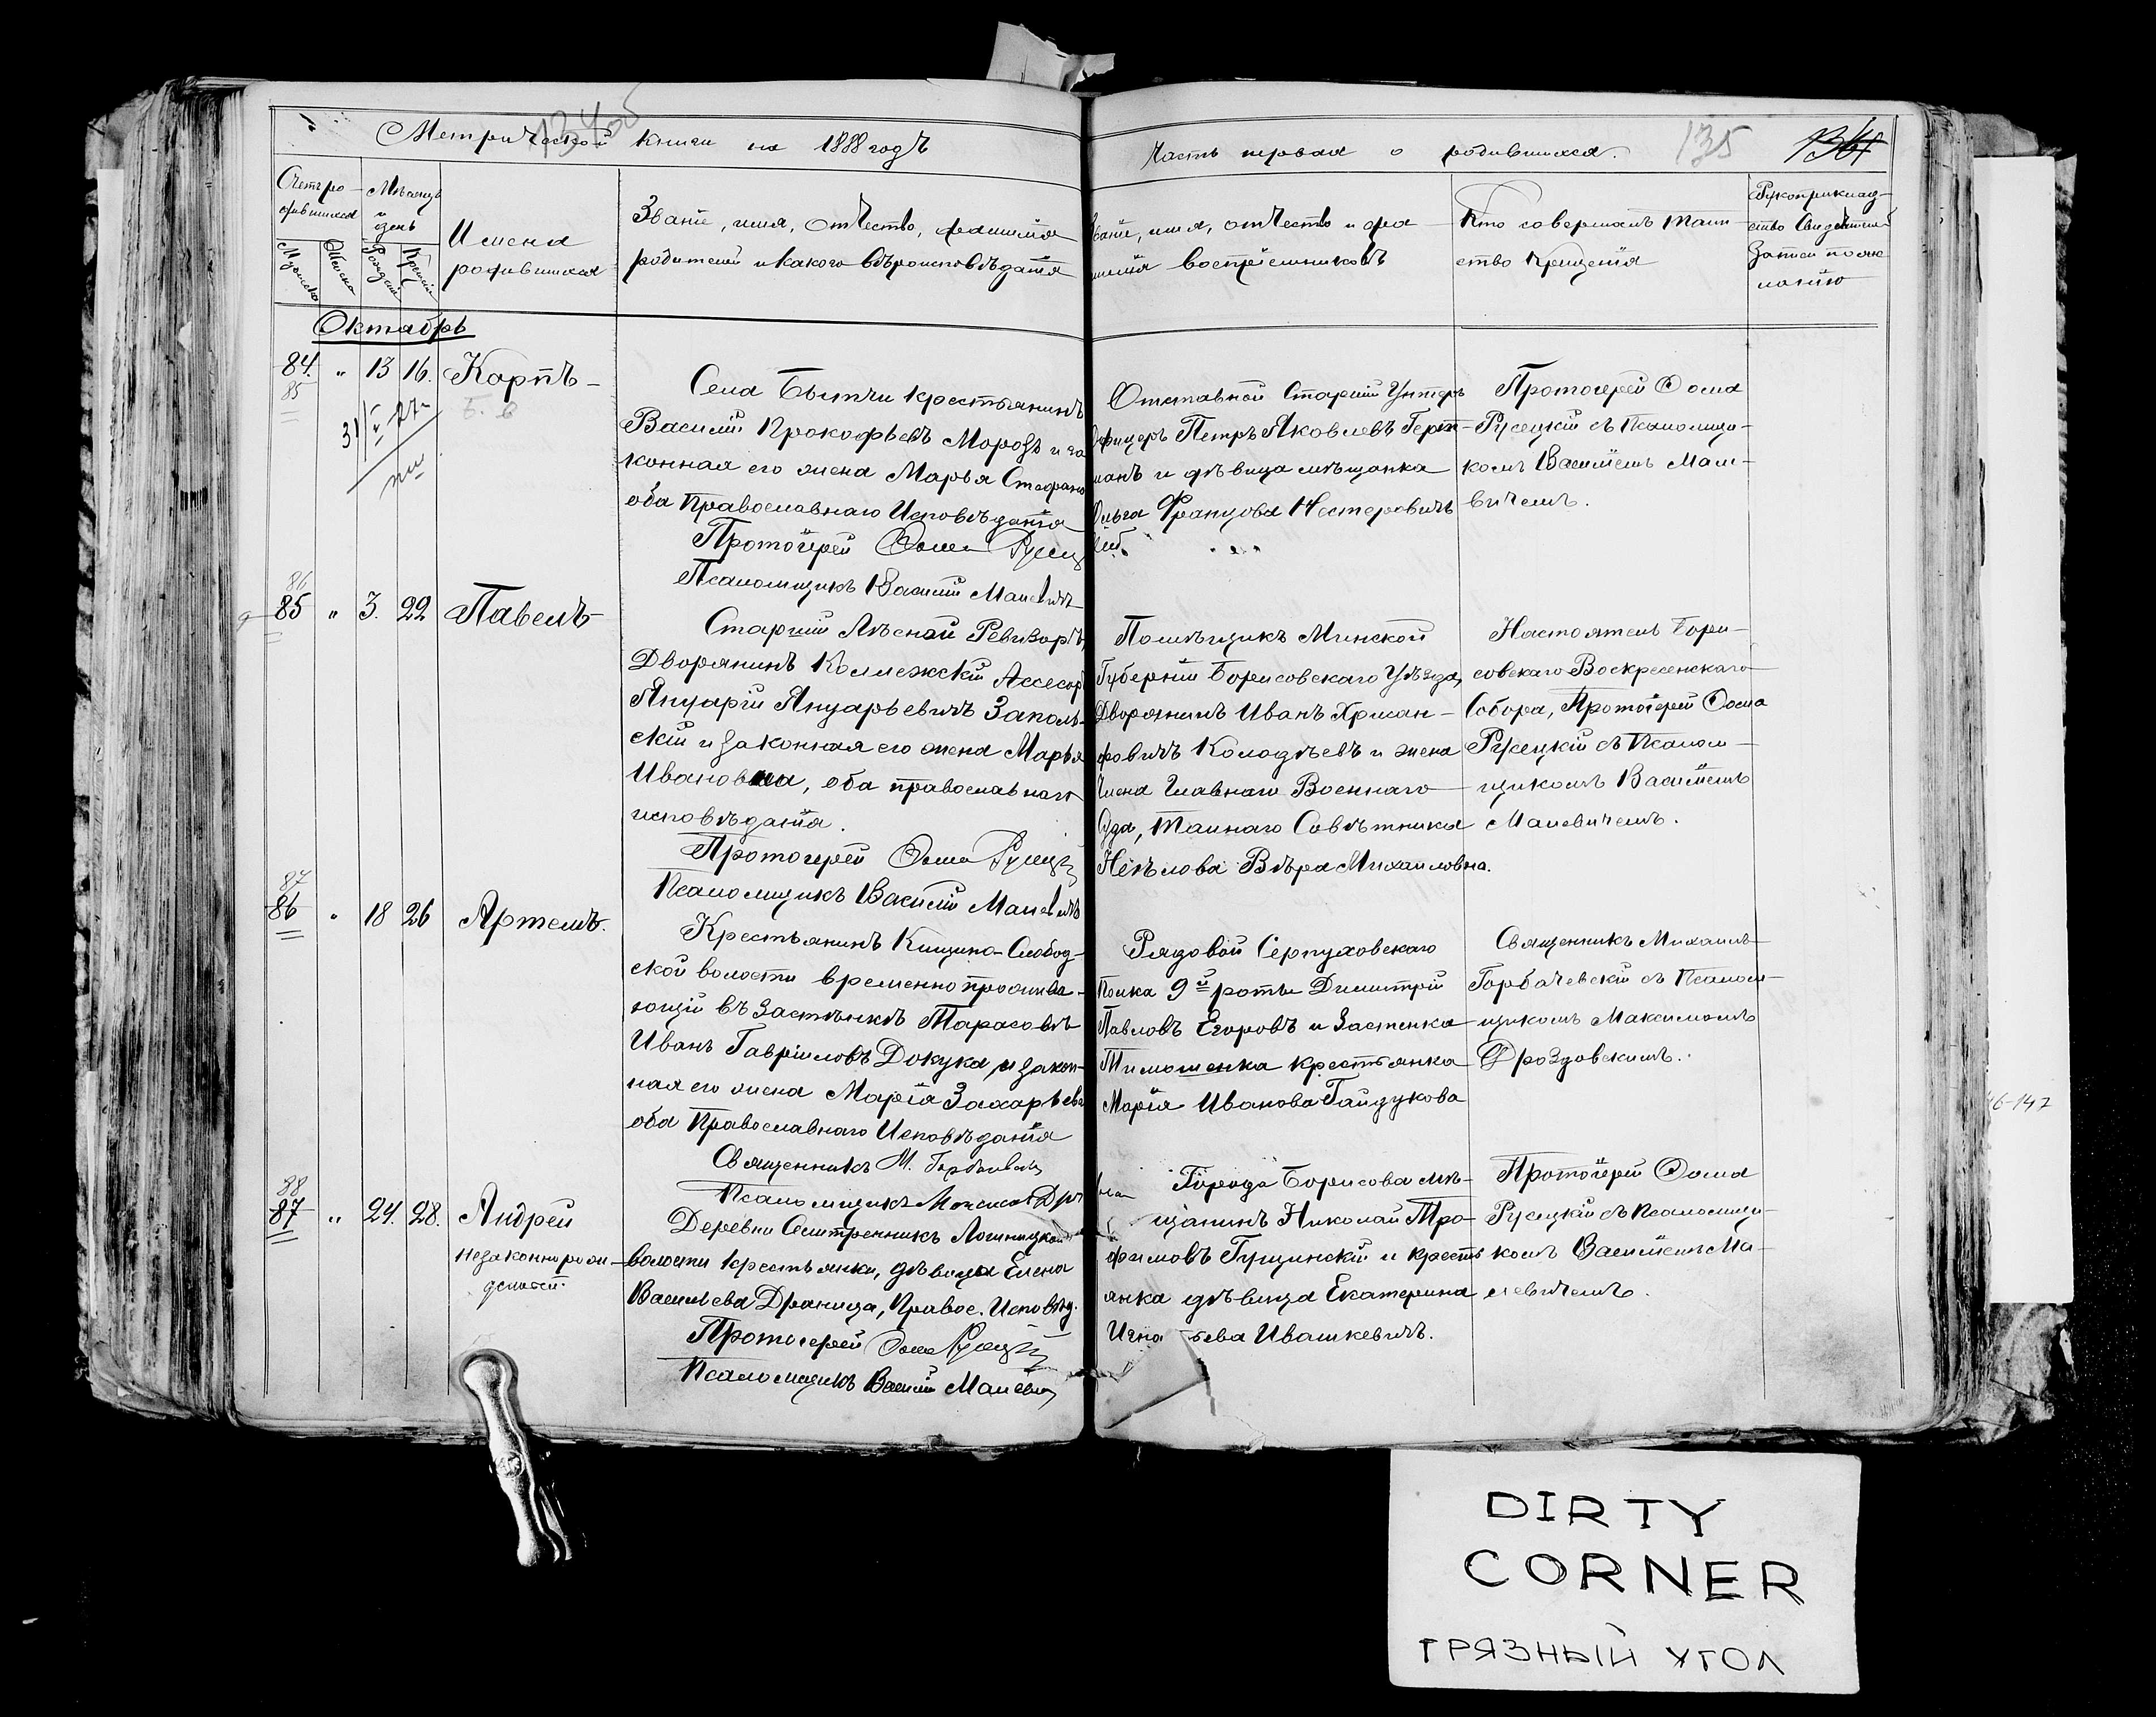 Метрической книги на 1888 годъ
Часть первая о родившихся.
135
Счетъ ро-
дившихся
Мужеска
Женска
Мѣсяцъ
и
день
Рожденія
Крещенія
Имена
родившихся
Званіе, имя, отчество, фамилія
родителей и какого вѣроисповѣданія
Званіе, имя, отчество и фа
милія воспріемниковъ
Кто совершалъ таин
ство крещенія
Рукоприклад-
ство свидѣтелей
записи по же
ланію
Октябрь
84.
85
"
13
16.
Карпъ
Села Бытчи крестьянинъ
Василій Прокофьевъ Морозъ и за
конная его жена Марья Стефано
оба Православнаго Исповѣданія
Протоіерей Ѳома Русецк
Псаломщикъ Василій Малевичъ
Отставной Старшій Унтеръ
Офицеръ Петръ Яковлевъ Герн-
манъ и дѣвица мѣщанка
Ольга Францова Нестеровичъ
Протоіерей Ѳома
Русецкій съ Псаломщи-
комъ Василіемъ Мале-
вичемъ.
86
85
"
3.
22
Павелъ
Старшій Лѣсной Ревизоръ,
Дворянинъ Коллежскій Ассесоръ
Януарій Януарьевичъ Заполь-
скій и законная его жена Марья
Ивановна, оба православнаго
исповѣданія.
Протоіерей Ѳома Русецкій
Псаломщикъ Василій Малевичъ
Помѣщикъ Минской
Губерніи Борисовскаго Уѣзда,
Дворянинъ Иванъ Хрисан-
фовичъ Колодѣевъ и жена
Члена Главнаго Военнаго
Суда, Тайнаго Совѣтника
Неѣлова Вѣра Михайловна.
Настоятель Бори-
совскаго Воскресенскаго
Собора, Протоіерей Ѳома
Русецкій съ Псалом-
щикомъ Василіемъ
Малевичемъ.
87
86
"
18
26
Артемъ.
Крестьянинъ Кищино-Слобод-
ской волости временно прожива-
ющій въ Застѣнкѣ Тарасовѣ
Иванъ Гавріиловъ Докука, и закон-
ная его жена Марія Захарьева
оба Православнаго Исповѣданія
Священникъ М. Горбачевскій
Псаломщикъ Максимъ Др
Рядовой Серпуховскаго
Полка 9й роты Димитрій
Павловъ Егоровъ и Застенка
Тимошенка крестьянка
Марія Иванова Гайдукова
Священникъ Михаилъ
Горбачевскій съ Псалом-
щикомъ Максимомъ
Дроздовскимъ.
88
87
"
24.
28.
Андрей
незаконнорож-
денный.
Деревни Светренникъ Лошницкой
волости крестьянки, дѣвицы Елена
Васильева Драница, Правос. Исповѣд.
Протоіерей Ѳома Русецкій
Псаломщикъ Василій Малевичъ
Города Борисова мѣ-
щанинъ Николай Тро-
фимовъ Гущинскій и кресть
янка дѣвица Екатерина
Игнатьева Ивашкевичъ.
Протоіерей Ѳома
Русецкій съ Псаломщи-
комъ Василіемъ Ма-
левичемъ.
6-147
DIRTY
CORNER
ГРЯЗНЫЙ УГОЛ